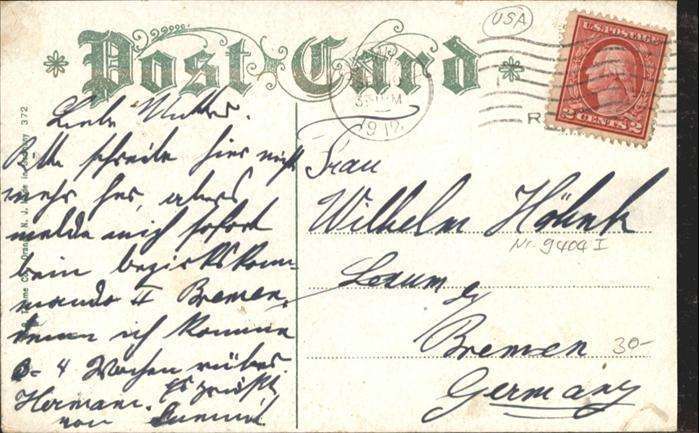 USA
Post Card
U.S. POSTAGE
2 CENTS 2
1912
372
Liebe Mutter.
Bitte schreibe hier nicht
mehr her, aber
melde mich sofort
beim bezirkskom-
mando II Bremen,
denn ich komme
3-4 Wochen rüber
Hermann. Es grüßt
von
Frau
Wilhelm Höhnk
Nr. 9404 I
Lesum by
Bremen
30-
Germany